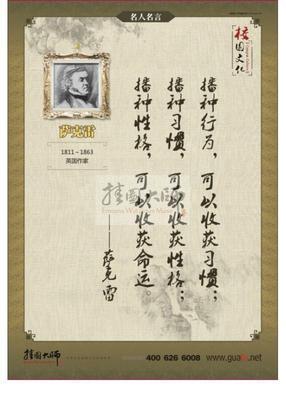 名人名言
校园文化
萨克雷
1811～1863
英国作家
播种行为，可以收获习惯；
播种习惯，可以收获性格；
播种性格，可以收获命运
——萨克雷
挂图大师
挂图大师
400 626 6008